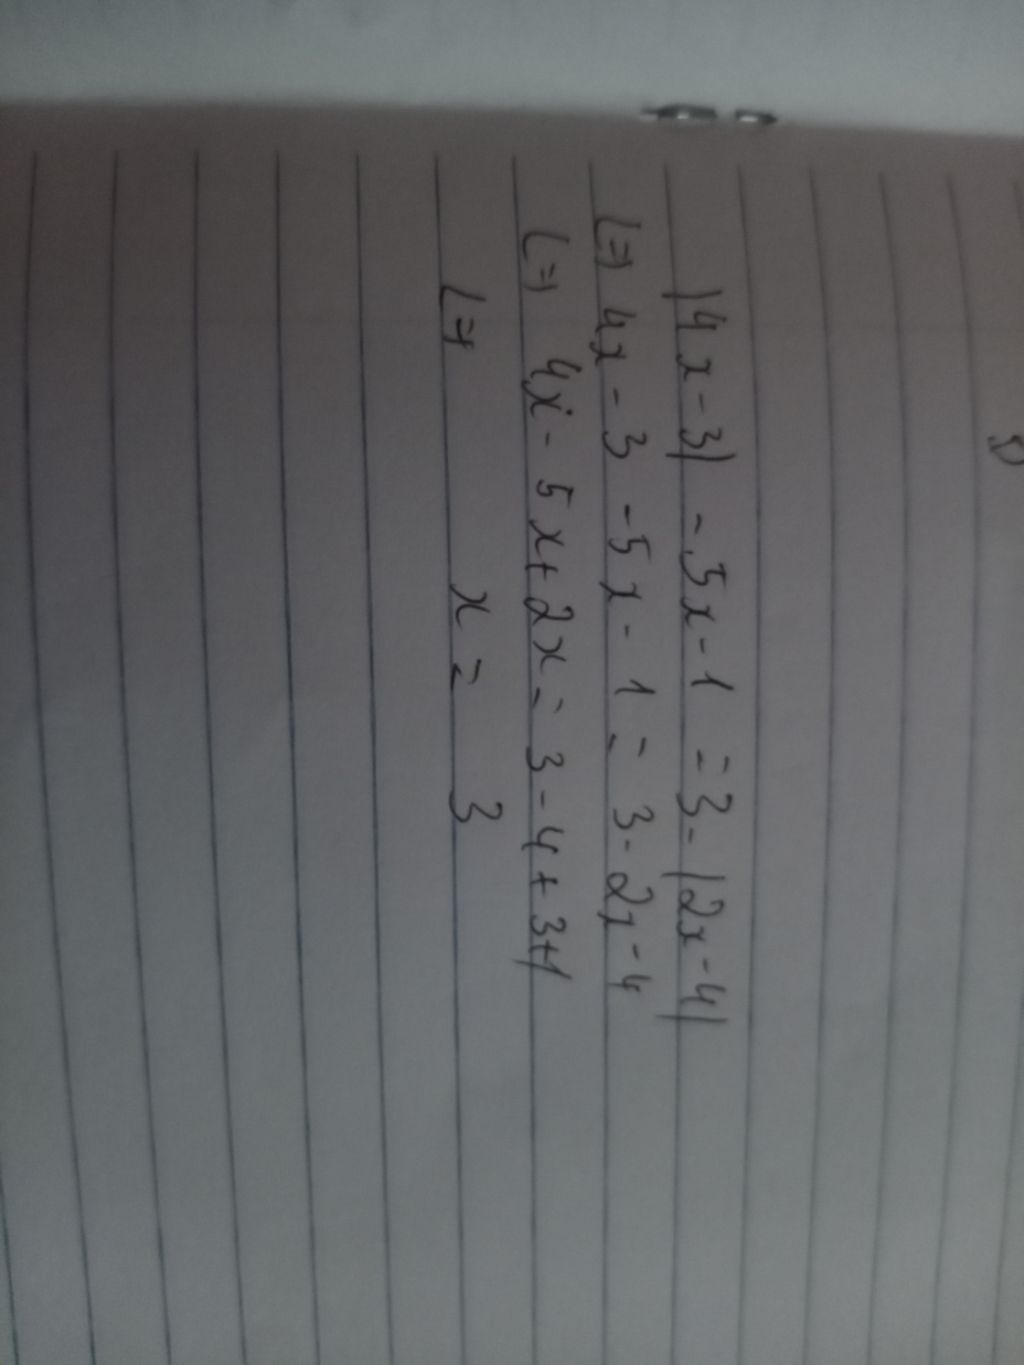 |4x-3| - 5x-1 = 3-|2x-4|
(=) 4x-3 -5x-1 = 3-2x-4
(=) 4x-5x+2x = 3-4+3+1
(=) x = 3